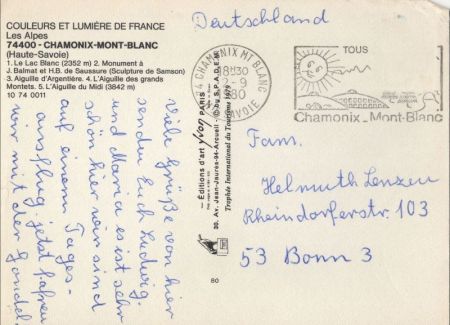 COULEURS ET LUMIÈRE DE FRANCE
Les Alpes
74400 - CHAMONIX-MONT-BLANC
(Haute-Savoie)
1. Le Lac Blanc (2352 m) 2. Monument à
J. Balmat et H.B. de Saussure (Sculpture de Samson)
3. Aiguille d'Argentière. 4. L'Aiguille des grands
Montets. 5. L'Aiguille du Midi (3842 m)
10 74 0011
Viele Grüße von hier
senden Euch Ludwig
und Maria es ist sehr
schön hier wir sind
auf einem Tages-
ausflug. jetzt fahren
wir mit der Gondel.
Editions d'art Yvon PARIS
30, Av. Jean-Jaurès-94-Arcueil - © by S.P.A.D.E.M.
Trophée International du Tourisme 1979
80
Deutschland
74 CHAMONIX MT BLANC
18H30
12-9
1980
SAVOIE
TOUS
Chamonix-Mont-Blanc
Fam.
Helmuth Lenzen
Rheindorferstr 103
53 Bonn 3